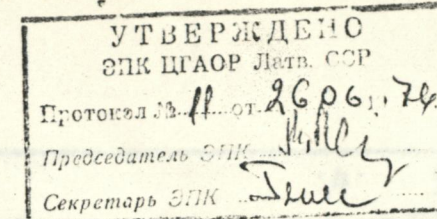 УТВЕРЖДЕНО
ЭПК ЦГАОР Латв. ССР
Протокол № 11 от 26 06 г. 74
Председатель ЭПК
Секретарь ЭПК